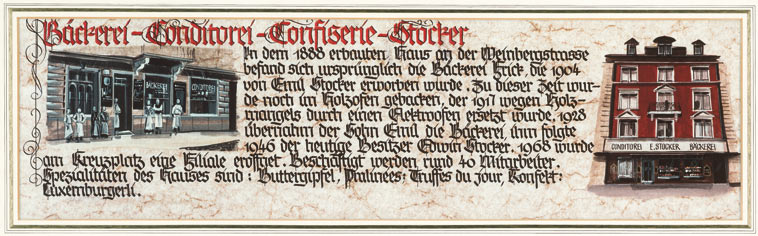 Bäckerei-Conditorei-Confiserie-Stocker
In dem 1888 erbauten Haus an der Weinbergstrasse
befand sich ursprünglich die Bäckerei Frick, die 1904
von Emil Stocker erworben wurde. Zu dieser Zeit wur-
de noch im Holzofen gebacken, der 1917 wegen Holz-
mangels durch einen Elektroofen ersetzt wurde. 1928
übernahm der Sohn Emil die Bäckerei, ihm folgte
1946 der heutige Besitzer Edwin Stocker. 1968 wurde
am Kreuzplatz eine Filiale eröffnet. Beschäftigt werden rund 40 Mitarbeiter.
Spezialitäten des Hauses sind: Buttergipfel, Pralinées, Truffes du jour, Konfekt,
Luxemburgerli.
BÄCKEREI
CONDITOREI
CONDITOREI E. STOCKER BÄCKEREI